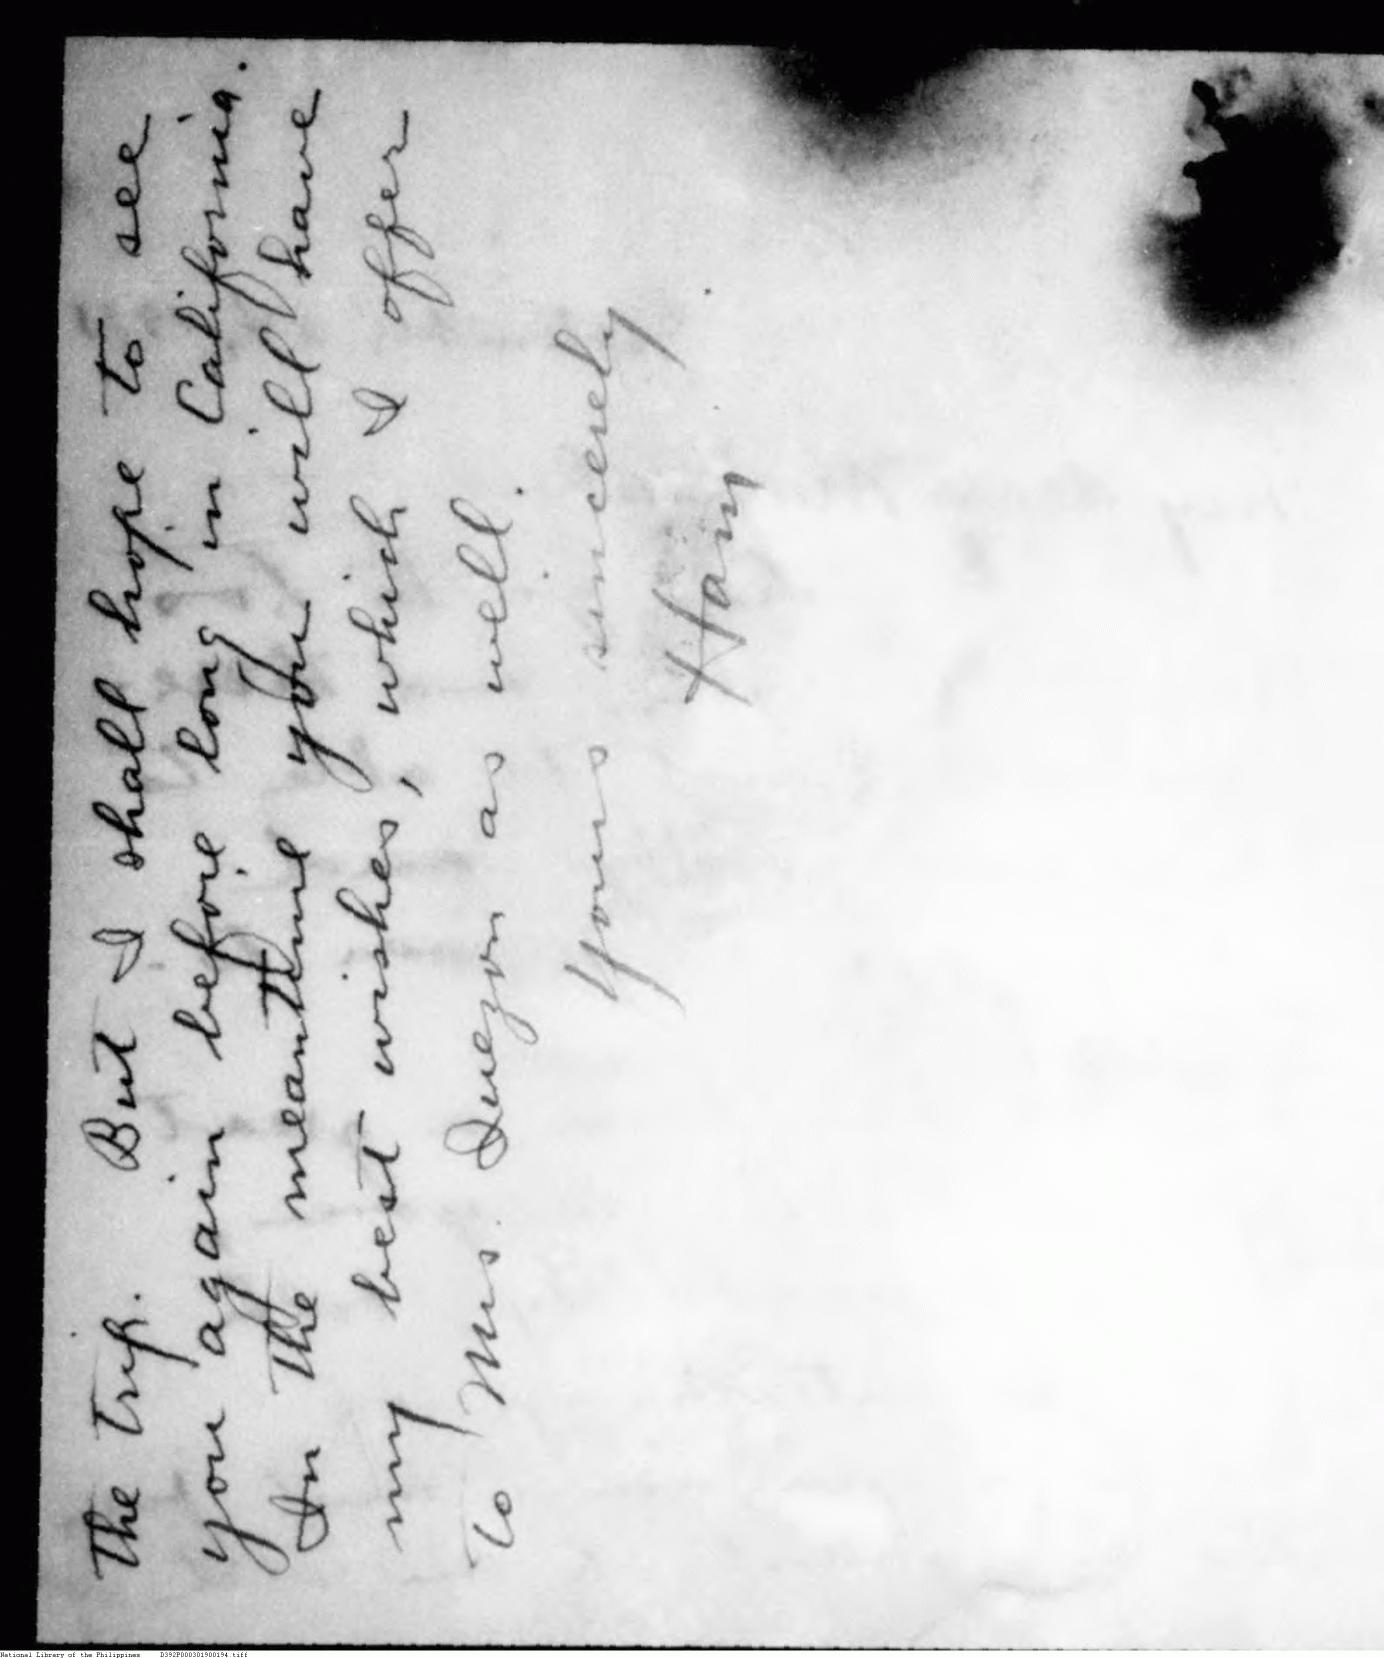 the trip. But I shall hope to see
you again before long in California.
In the meantime you will have
my best wishes, which I offer
to Mrs. Quezon as well.
Yours sincerely
Harry
National Library of the Philippines D392P000301900194.tiff